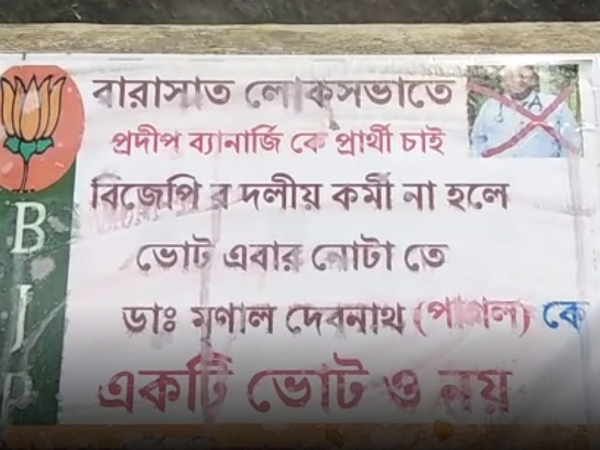 বারাসাত লোকসভাতে
প্রদীপ ব্যানার্জি কে প্রার্থী চাই
বিজেপি র দলীয় কর্মী না হলে
ভোট এবার নোটা তে
ডাঃ মৃণাল দেবনাথ (পাগল) কে
একটি ভোট ও নয়
B
J
P